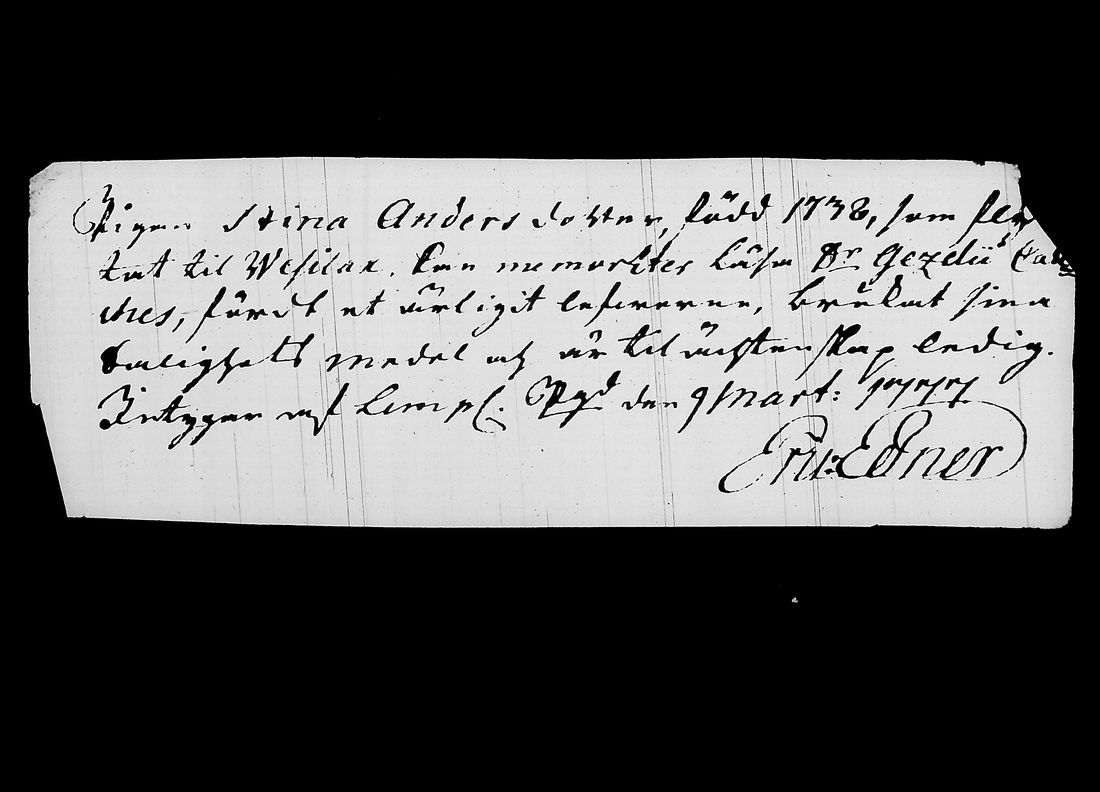 Pigan Stina Anders dotter, född 1738, som flyt
tat til Wesilax, kan memoriter läsa Dr Gezelii Cate
ches, fördt et ärligit lefverne, brukat sina
Salighets medel och är til ächtenskap ledig.
Intygar af Lemp. Pgd den 9 Mart: 1777
Eric Edner